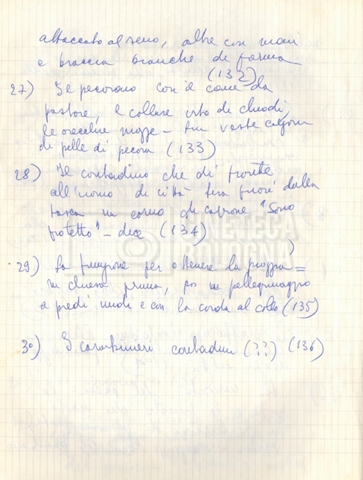 attaccato al seno, altre con mani
e braccia bianche di farina
(132)
27) Il pecoraio con il cane da
pastore, e collare irto di chiodi,
le orecchie mozze - tu veste
di pelle di pecora (133)
28) Il contadino che di fronte
all'uomo di città tira fuori dalla
tasca un corno di caprone "Sono
protetto" - dice (134)
29) La funzione per ottenere la pioggia =
in chiesa prima, poi in pellegrinaggio
a piedi nudi e con la corda al collo (135)
30) I carabinieri contadini (??) (136)
CINETECA
BOLOGNA